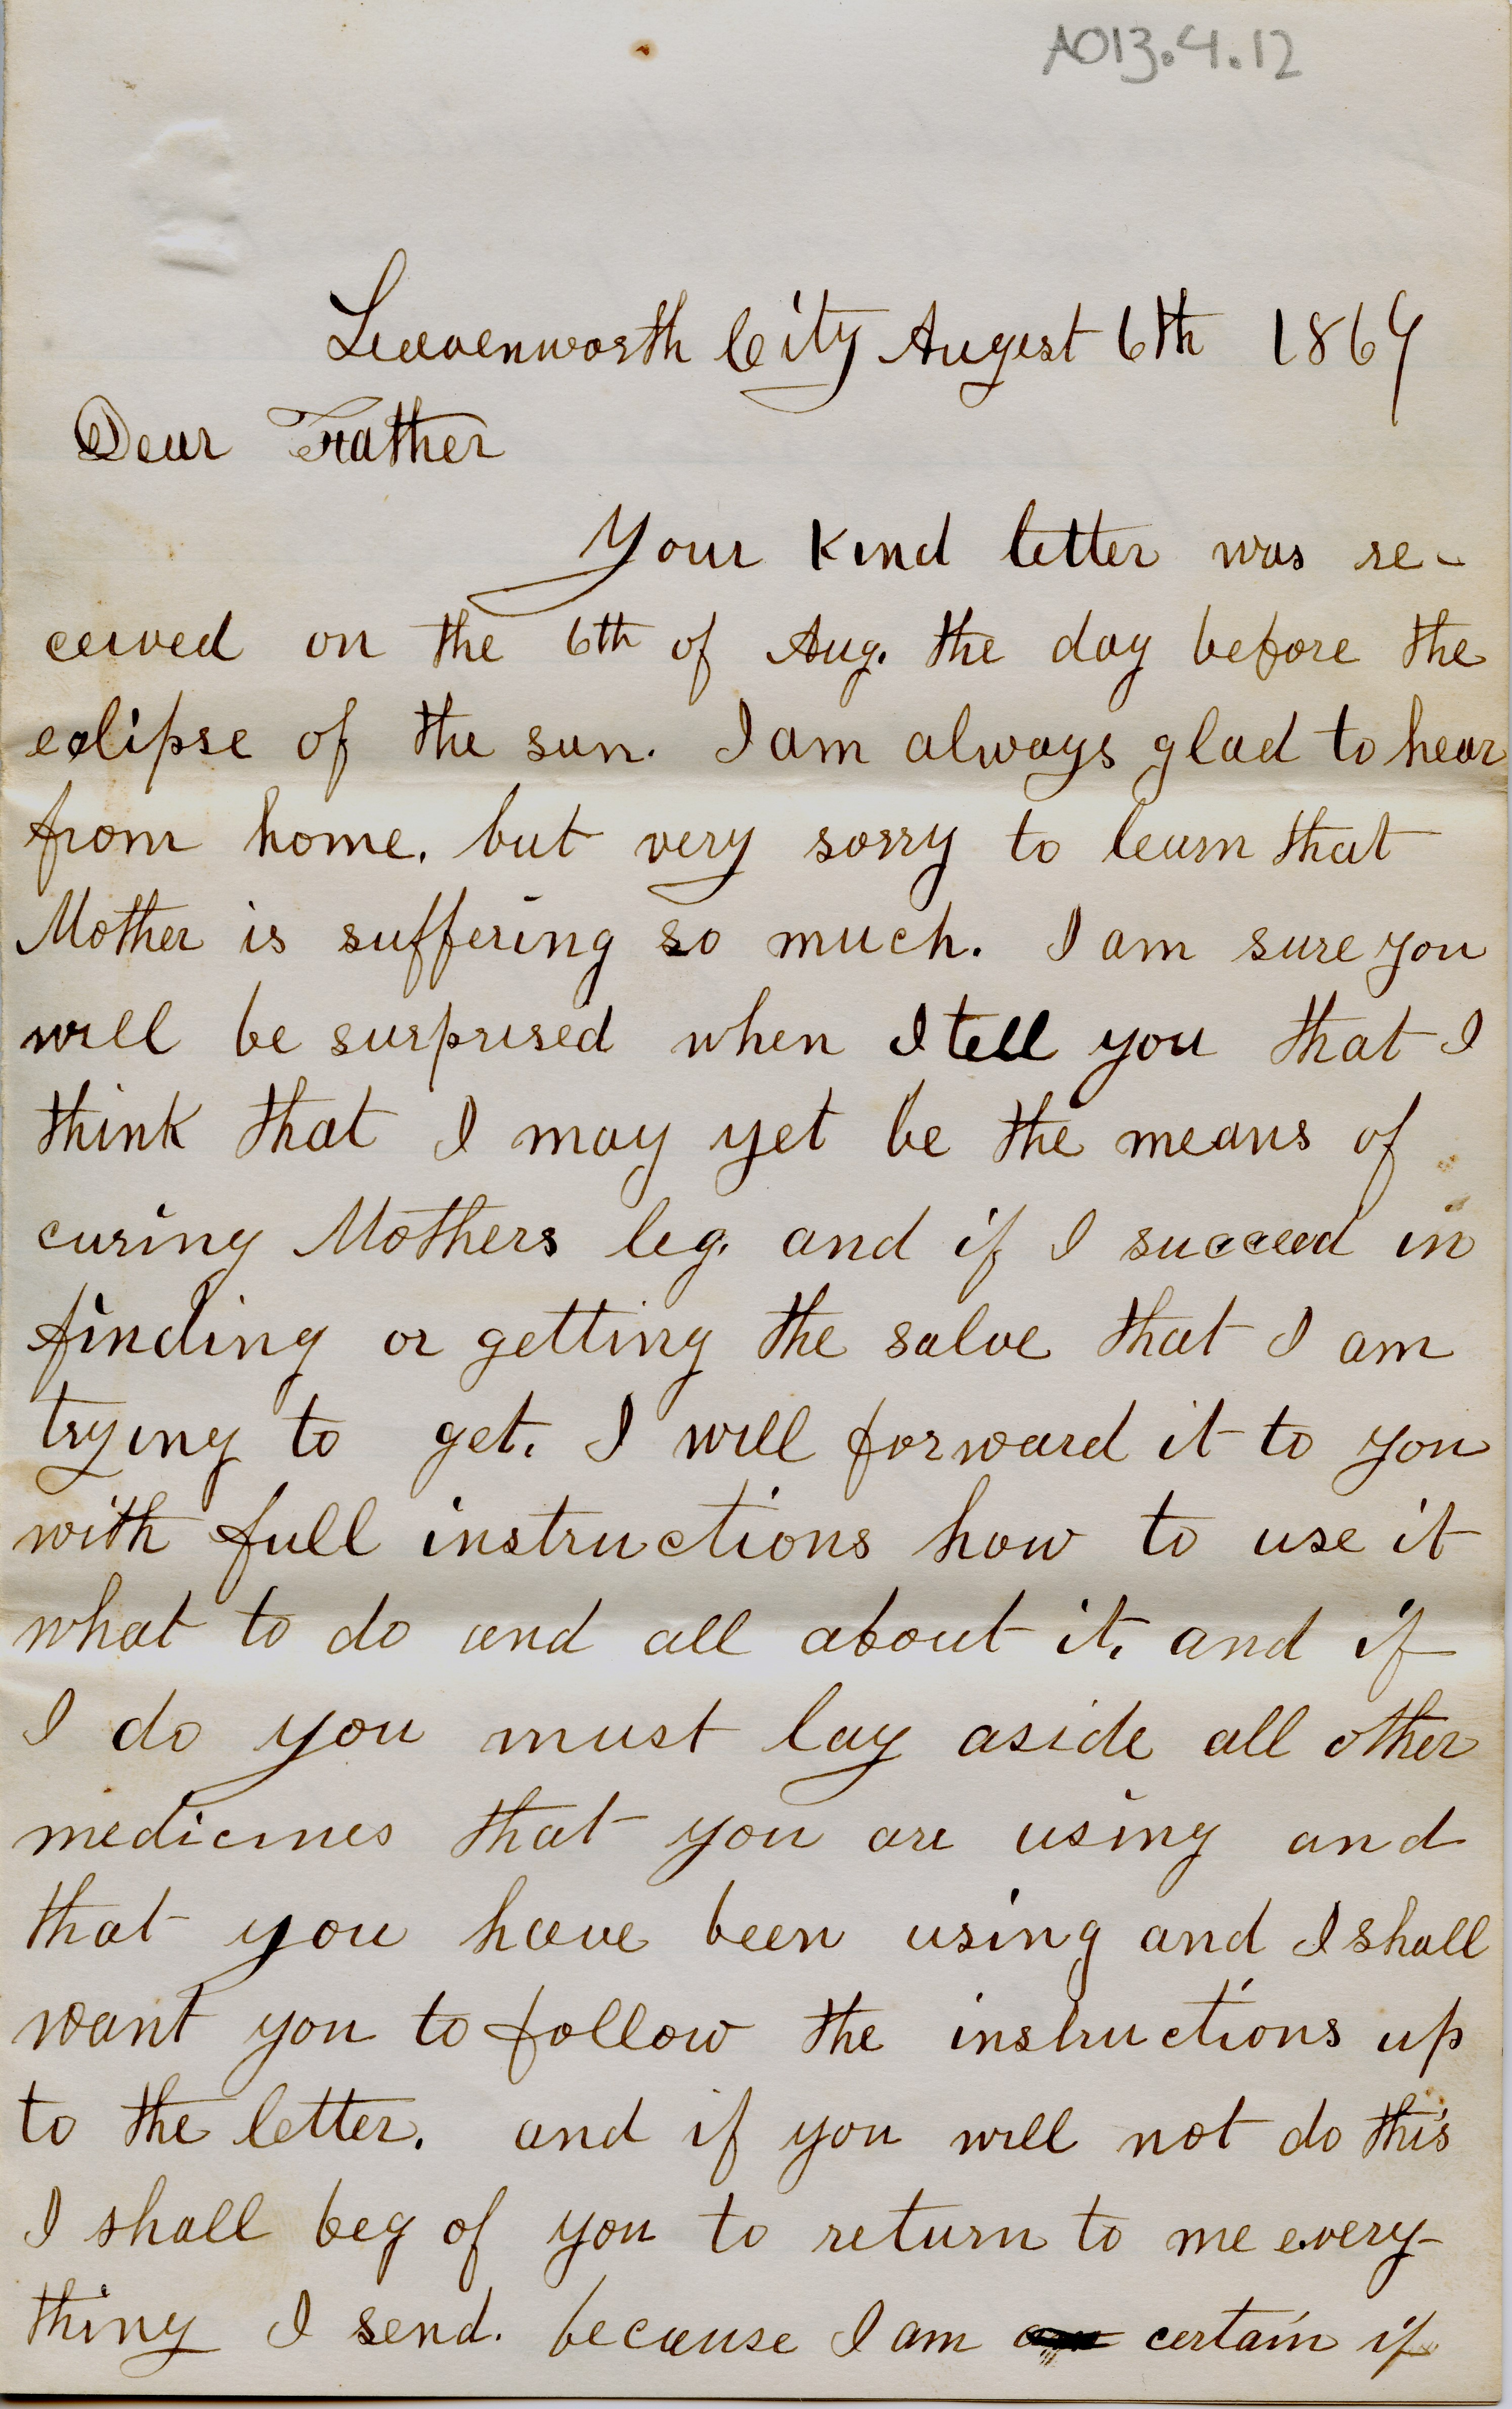 A013.4.12
Leavenworth City August 6th 1869
Dear Father
Your kind letter was re-
ceived on the 6th of Aug. the day before the
eclipse of the sun. I am always glad to hear
from home. but very sorry to learn that
Mother is suffering so much. I am sure you
will be surprised when I tell you that I
think that I may yet be the means of
curing Mothers leg. and if I succeed in
finding or getting the salve that I am
trying to get. I will forward it to you
with full instructions how to use it
what to do and all about it. and if
I do you must lay aside all other
medicines that you are using and
that you have been using and I shall
want you to follow the instructions up
to the letter. and if you will not do this
I shall beg of you to return to me every-
thing I send. because I am certain if